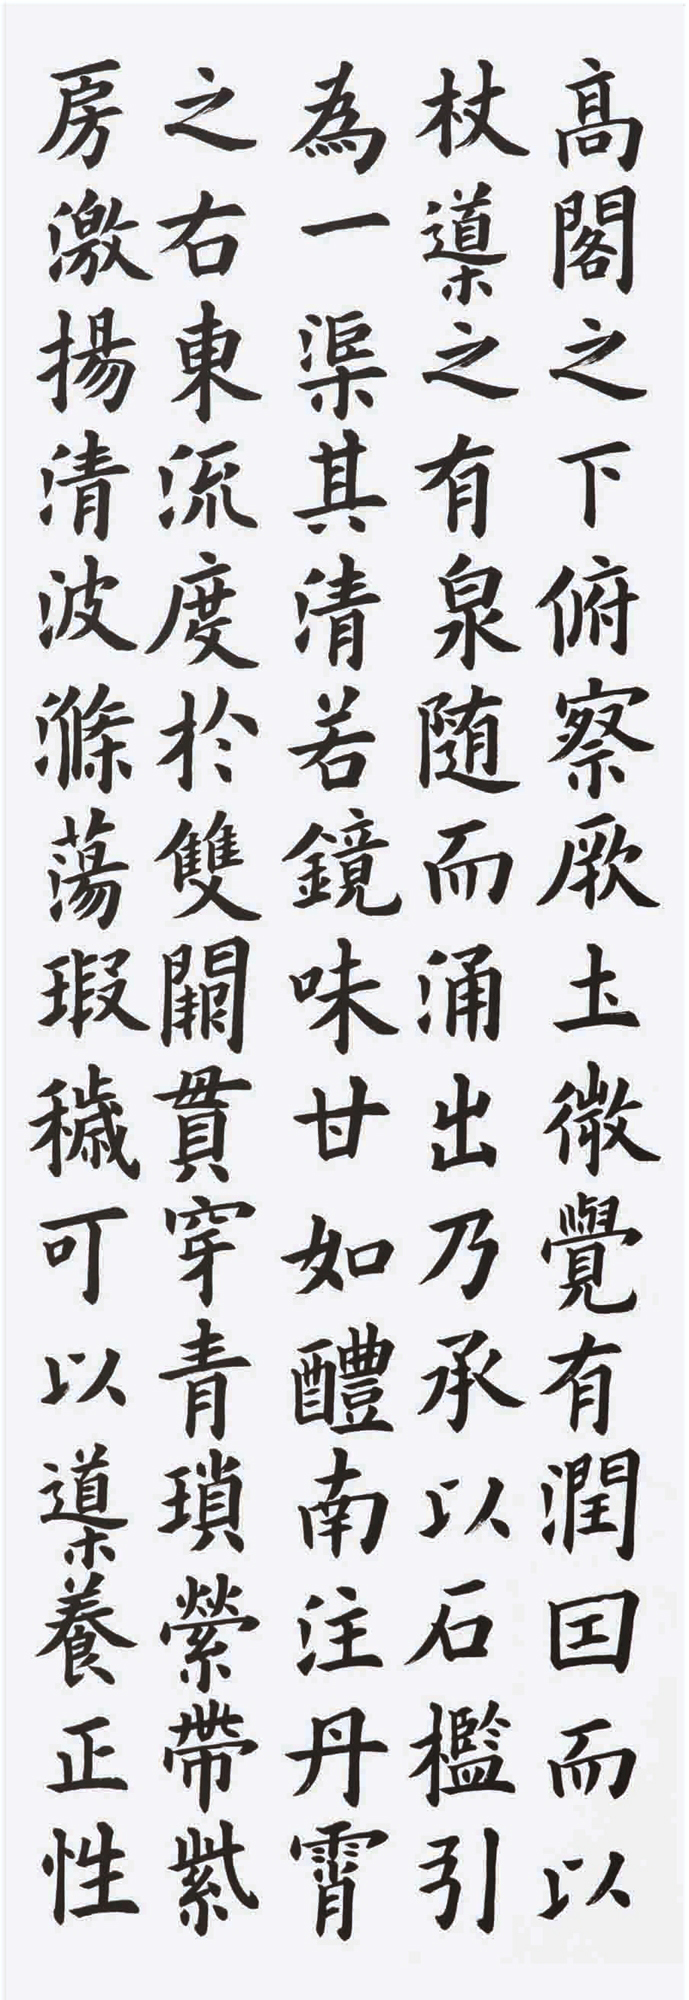 高閣之下俯察厥土微覺有潤因而以
杖導之有泉随而涌出乃承以石檻引
為一渠其清若鏡味甘如醴南注丹霄
之右東流度於雙闕貫穿青瑣縈帶紫
房激揚清波滌蕩瑕穢可以導養正性